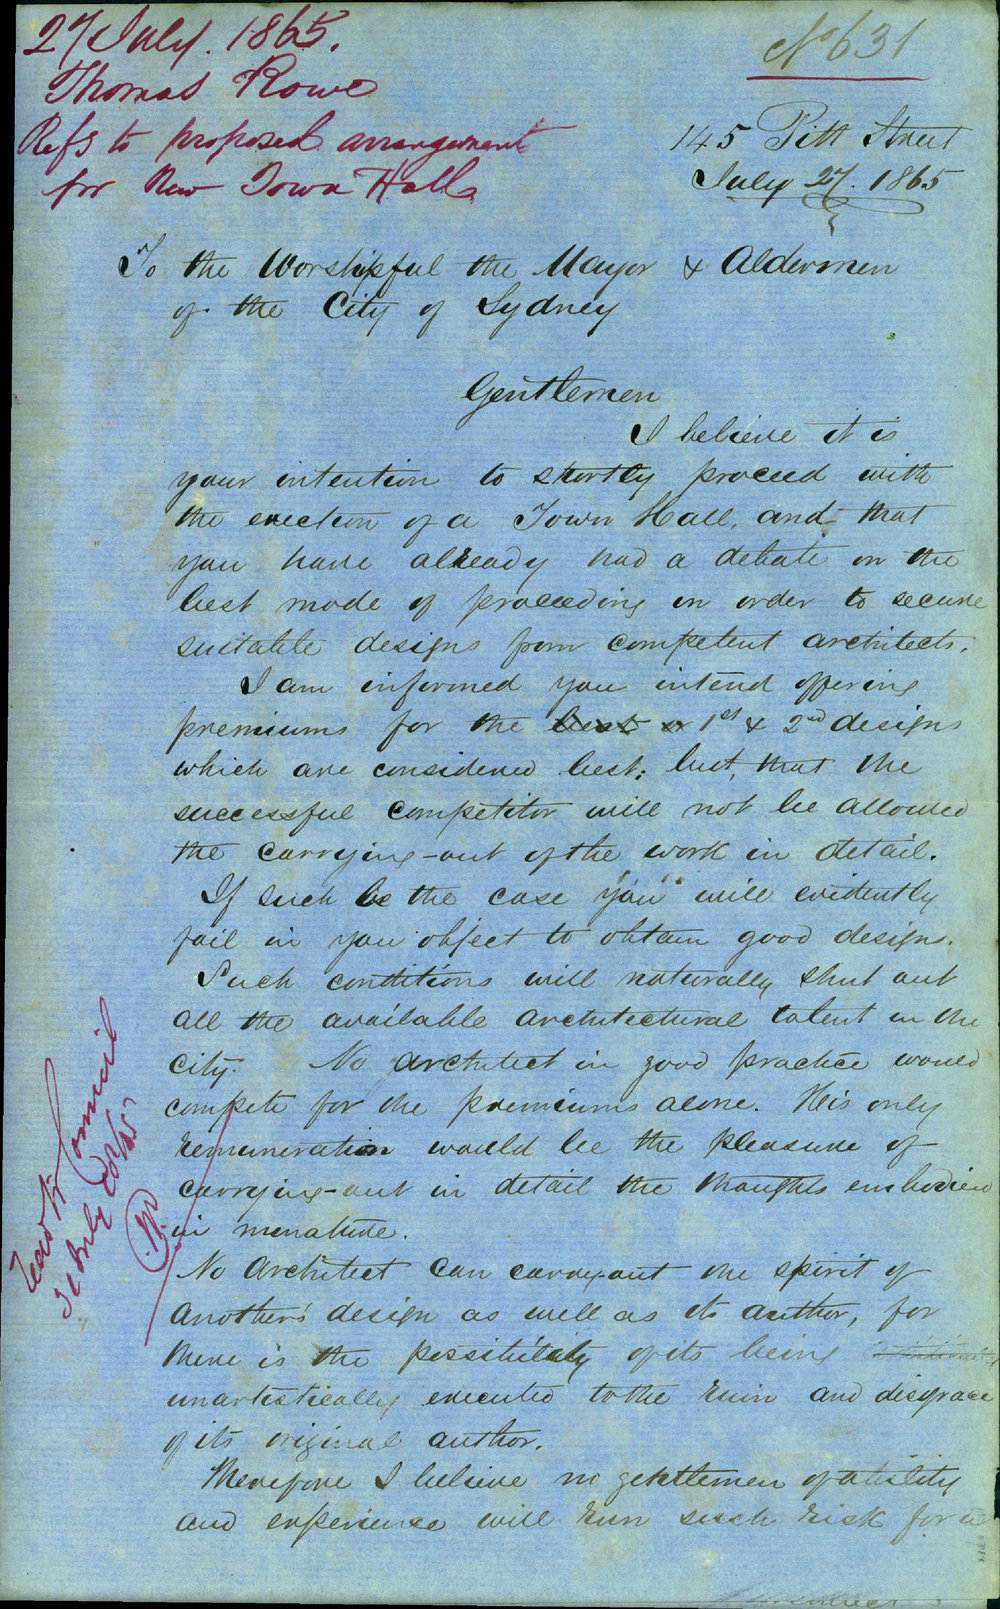 27 July. 1865.
Thomas Rowe
Refs to proposed arrangements
for New Town Hall
No 631
145 Pitt Street
July 27. 1865
To the Worshipful the Mayor & Aldermen
of the City of Sydney
Gentlemen
I believe it is
your intention to shortly proceed with
the erection of a Town Hall, and that
you have already had a debate on the
best mode of proceeding in order to secure
suitable designs from competent architects.
I am informed you intend offering
premiums for the best 1st & 2nd designs
which are considered best; but, that the
successful competitor will not be allowed
the carrying-out of the work in detail.
If such be the case you will evidently
fail in you object to obtain good designs.
Such conditions will naturally shut out
all the available architectural talent in the
city. No architect in good practice would
compete for the premiums alone. His only
remuneration would be the pleasure of
carrying-out in detail the thoughts embodied
in minature.
No Architect can carry-out the spirit of
another's design as well as its author, for
there is the possibility of its being
unartistically executed to the ruin and disgrace
of its original author.
Therefore I believe no gentlemen of ability
and experience will run such risk for a
Council